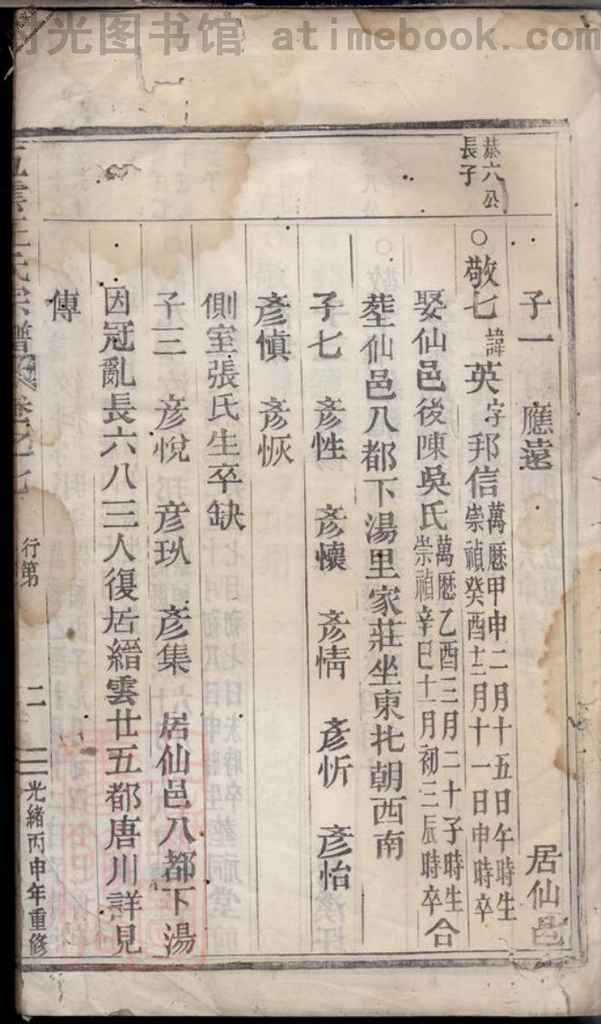 时光图书馆 atimebook.com
恭六公
長子
子一 應遠 居仙邑
○敬七 諱英 字邦信 萬曆甲申二月十五日午時生
崇禎癸酉十二月十一日申時卒
娶仙邑後陳吳氏 萬曆乙酉三月二十子時生
崇禎辛巳十一月初三辰時卒 合
塟仙邑八都下湯里家莊坐東北朝西南
子七 彥性 彥懷 彥情 彥忻 彥怡
彥慎 彥恢
側室張氏生卒缺
子三 彥悅 彥 彥集 居仙邑八都下湯
因冠亂長六八三人復居縉雲廿五都唐川詳見
傳
五雲王氏宗譜 卷之七 行第 二 光緒丙申年重修